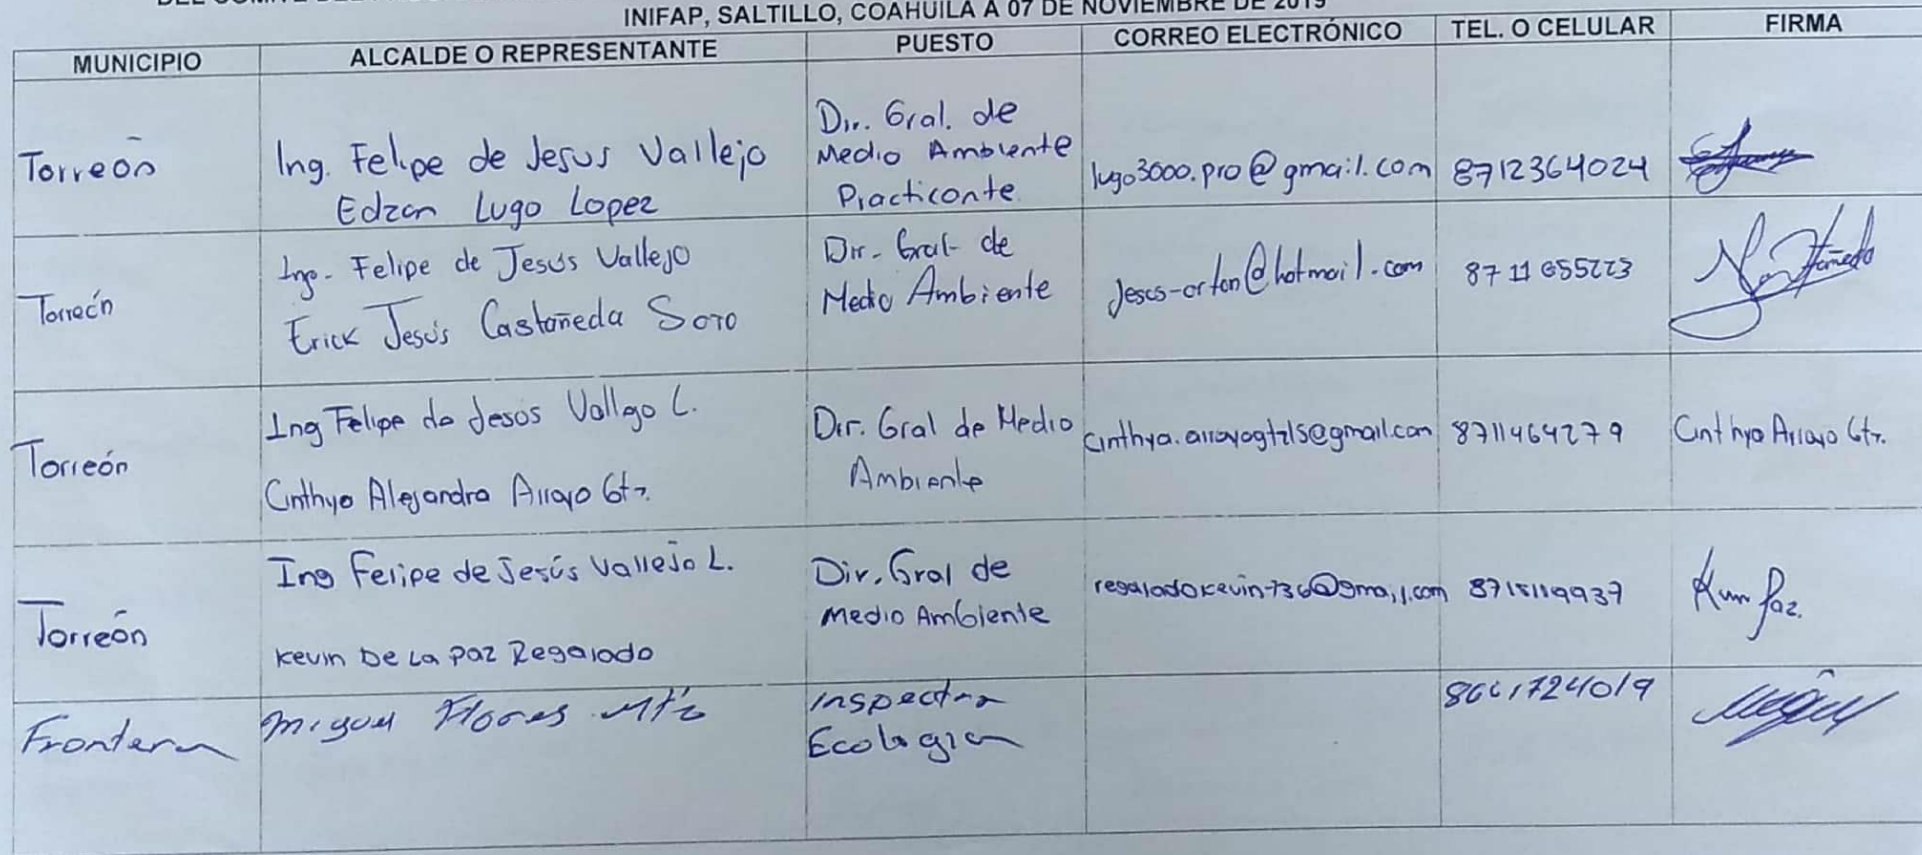 INIFAP, SALTILLO, COAHUILA A 07 DE NOVIEMBRE DE 2019
MUNICIPIO ALCALDE O REPRESENTANTE PUESTO CORREO ELECTRÓNICO TEL. O CELULAR FIRMA
Torreón
Ing. Felipe de Jesus Vallejo
Edzan Lugo Lopez
Dir. Gral. de
Medio Ambiente
Practicante
lugo3000.pro@gmail.com
8712364024
Torreón
Ing. Felipe de Jesús Vallejo
Erick Jesús Castañeda Soto
Dir. Gral de
Medio Ambiente
Jesus-orton@hotmail.com
Torreón
Ing Felipe de Jesos Vallejo L.
Cinthya Alejandra Arrayo Gtz.
Dir. Gral de Medio
Ambiente
8711464279
Cinthya Arrayo Gtz.
Torreón
Ing Felipe de Jesús Vallejo L.
Kevin De La Paz Regalado
Dir. Gral de
Medio Ambiente
regaladokevin736@gmail.com
8715119937
Frontera
Miguel Flores Mtz
Inspector
Ecologia